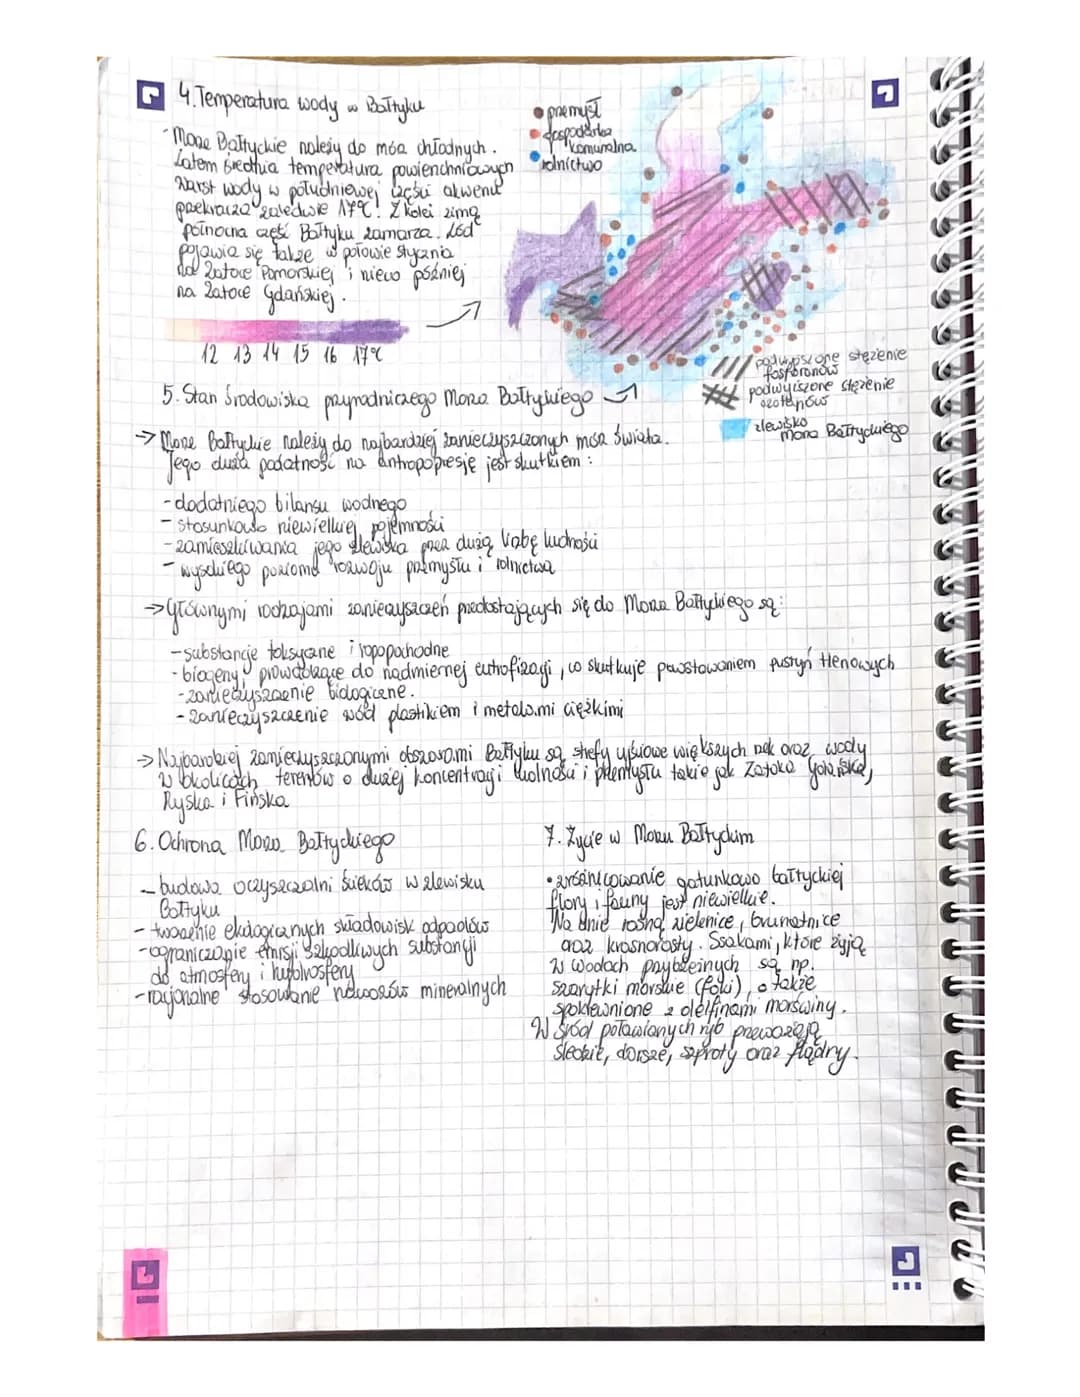 4. Temperatura wody w Bałtyku
- Morze Bałtyckie należy do mórz chłodnych.
Latem średnia temperatura powierzchniowych
warst wody w południowej części akwenu
przekracza zaledwie 17°C. Z kolei zimą
północna część Bałtyku zamarza. Lód
pojawia się także w połowie stycznia
na Zatoce Pomorskiej i nieco później
na Zatoce Gdańskiej.
12 13 14 15 16 17°C
przemysł
gospodarka
komunalna
rolnictwo
podwyższone stężenie
fosforanów
podwyższone stężenie
azotanów
zlewisko
morza Bałtyckiego
5. Stan środowiska przyrodniczego Morza Bałtyckiego
→ Morze Bałtyckie należy do najbardziej zanieczyszczonych mórz świata.
Jego duża podatność na antropopresję jest skutkiem:
- dodatniego bilansu wodnego
- stosunkowo niewielkiej pojemności
- zamieszkiwania jego zlewiska przez dużą liczbę ludności
- wysokiego poziomu rozwoju przemysłu i rolnictwa
→ Głównymi rodzajami zanieczyszczeń przedostających się do Morza Bałtyckiego są:
- substancje toksyczne i ropopochodne
- biogeny prowadzące do nadmiernej eutrofizacji, co skutkuje powstawaniem pustyń tlenowych
- zanieczyszczenie biologiczne.
- zanieczyszczenie wód plastikiem i metalami ciężkimi
→ Najbardziej zanieczyszczonymi obszarami Bałtyku są strefy ujściowe większych rzek oraz wody
w okolicach terenów o dużej koncentracji ludności i przemysłu takie jak Zatoka Gdańska,
Ryska i Fińska
6. Ochrona Morza Bałtyckiego
- budowa oczyszczalni ścieków w zlewisku
Bałtyku
- tworzenie ekologicznych składowisk odpadów
- ograniczanie emisji szkodliwych substancji
do atmosfery i hydrosfery
- racjonalne stosowanie nawozów mineralnych
7. Życie w Morzu Bałtyckim
• zróżnicowanie gatunkowo bałtyckiej
flory i fauny jest niewielkie.
Na dnie rosną zielenice, brunatnice
oraz krasnorosty. Ssakami, które żyją
w wodach przybrzeżnych są np.
szarytki morskie (foki), a także
spokrewnione z delfinami morświny.
Wśród poławianych ryb przeważają
śledzie, dorsze, szproty oraz flądry.